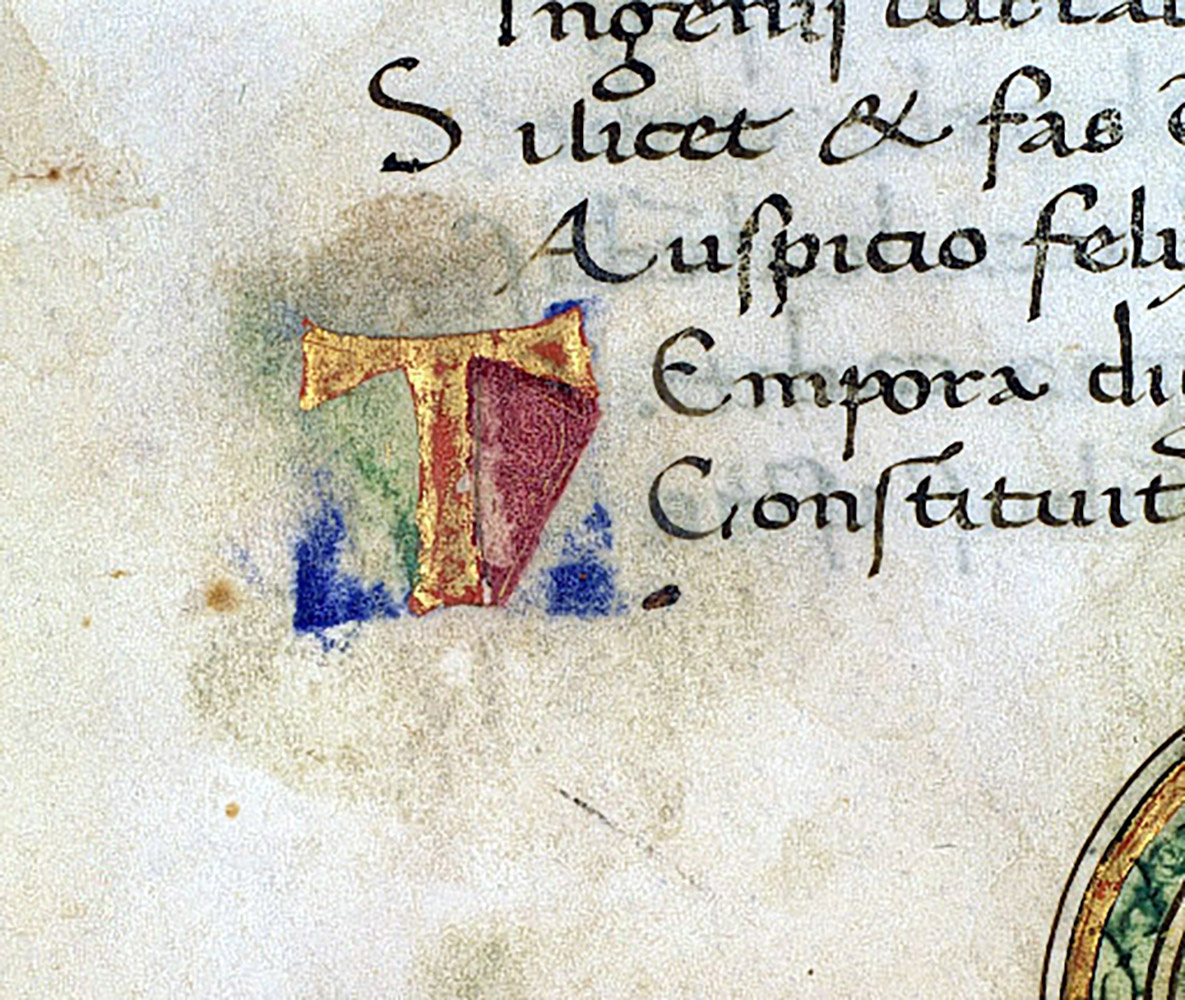 Ingenij
Silicet & fas
Auſpicio
T Empora
Conſtituit